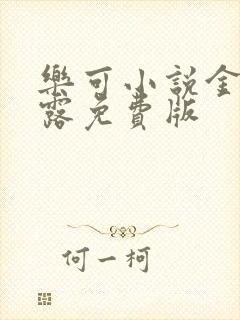 樂可小說金
露免費版
何一柯